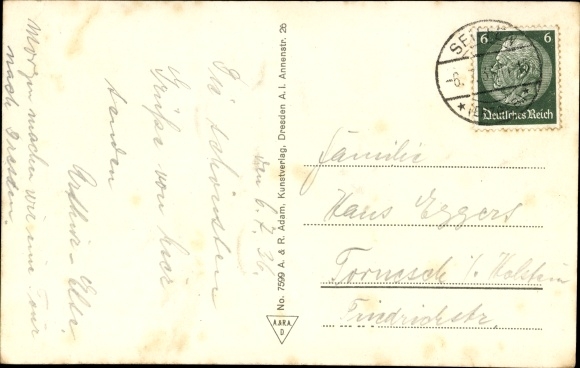 Die schönsten
Grüße von hier
senden
Arthur - Else.
Morgen machen wir eine Tour
nach Dresden.
den 6.7.36
No. 7599 A. & R. Adam, Kunstverlag, Dresden A. I. Annenstr. 26
A.&R.A.
D
6 6
Deutsches Reich
Familie
Hans Eggers
Tornesch i/ Holstein
Friedrichstr.